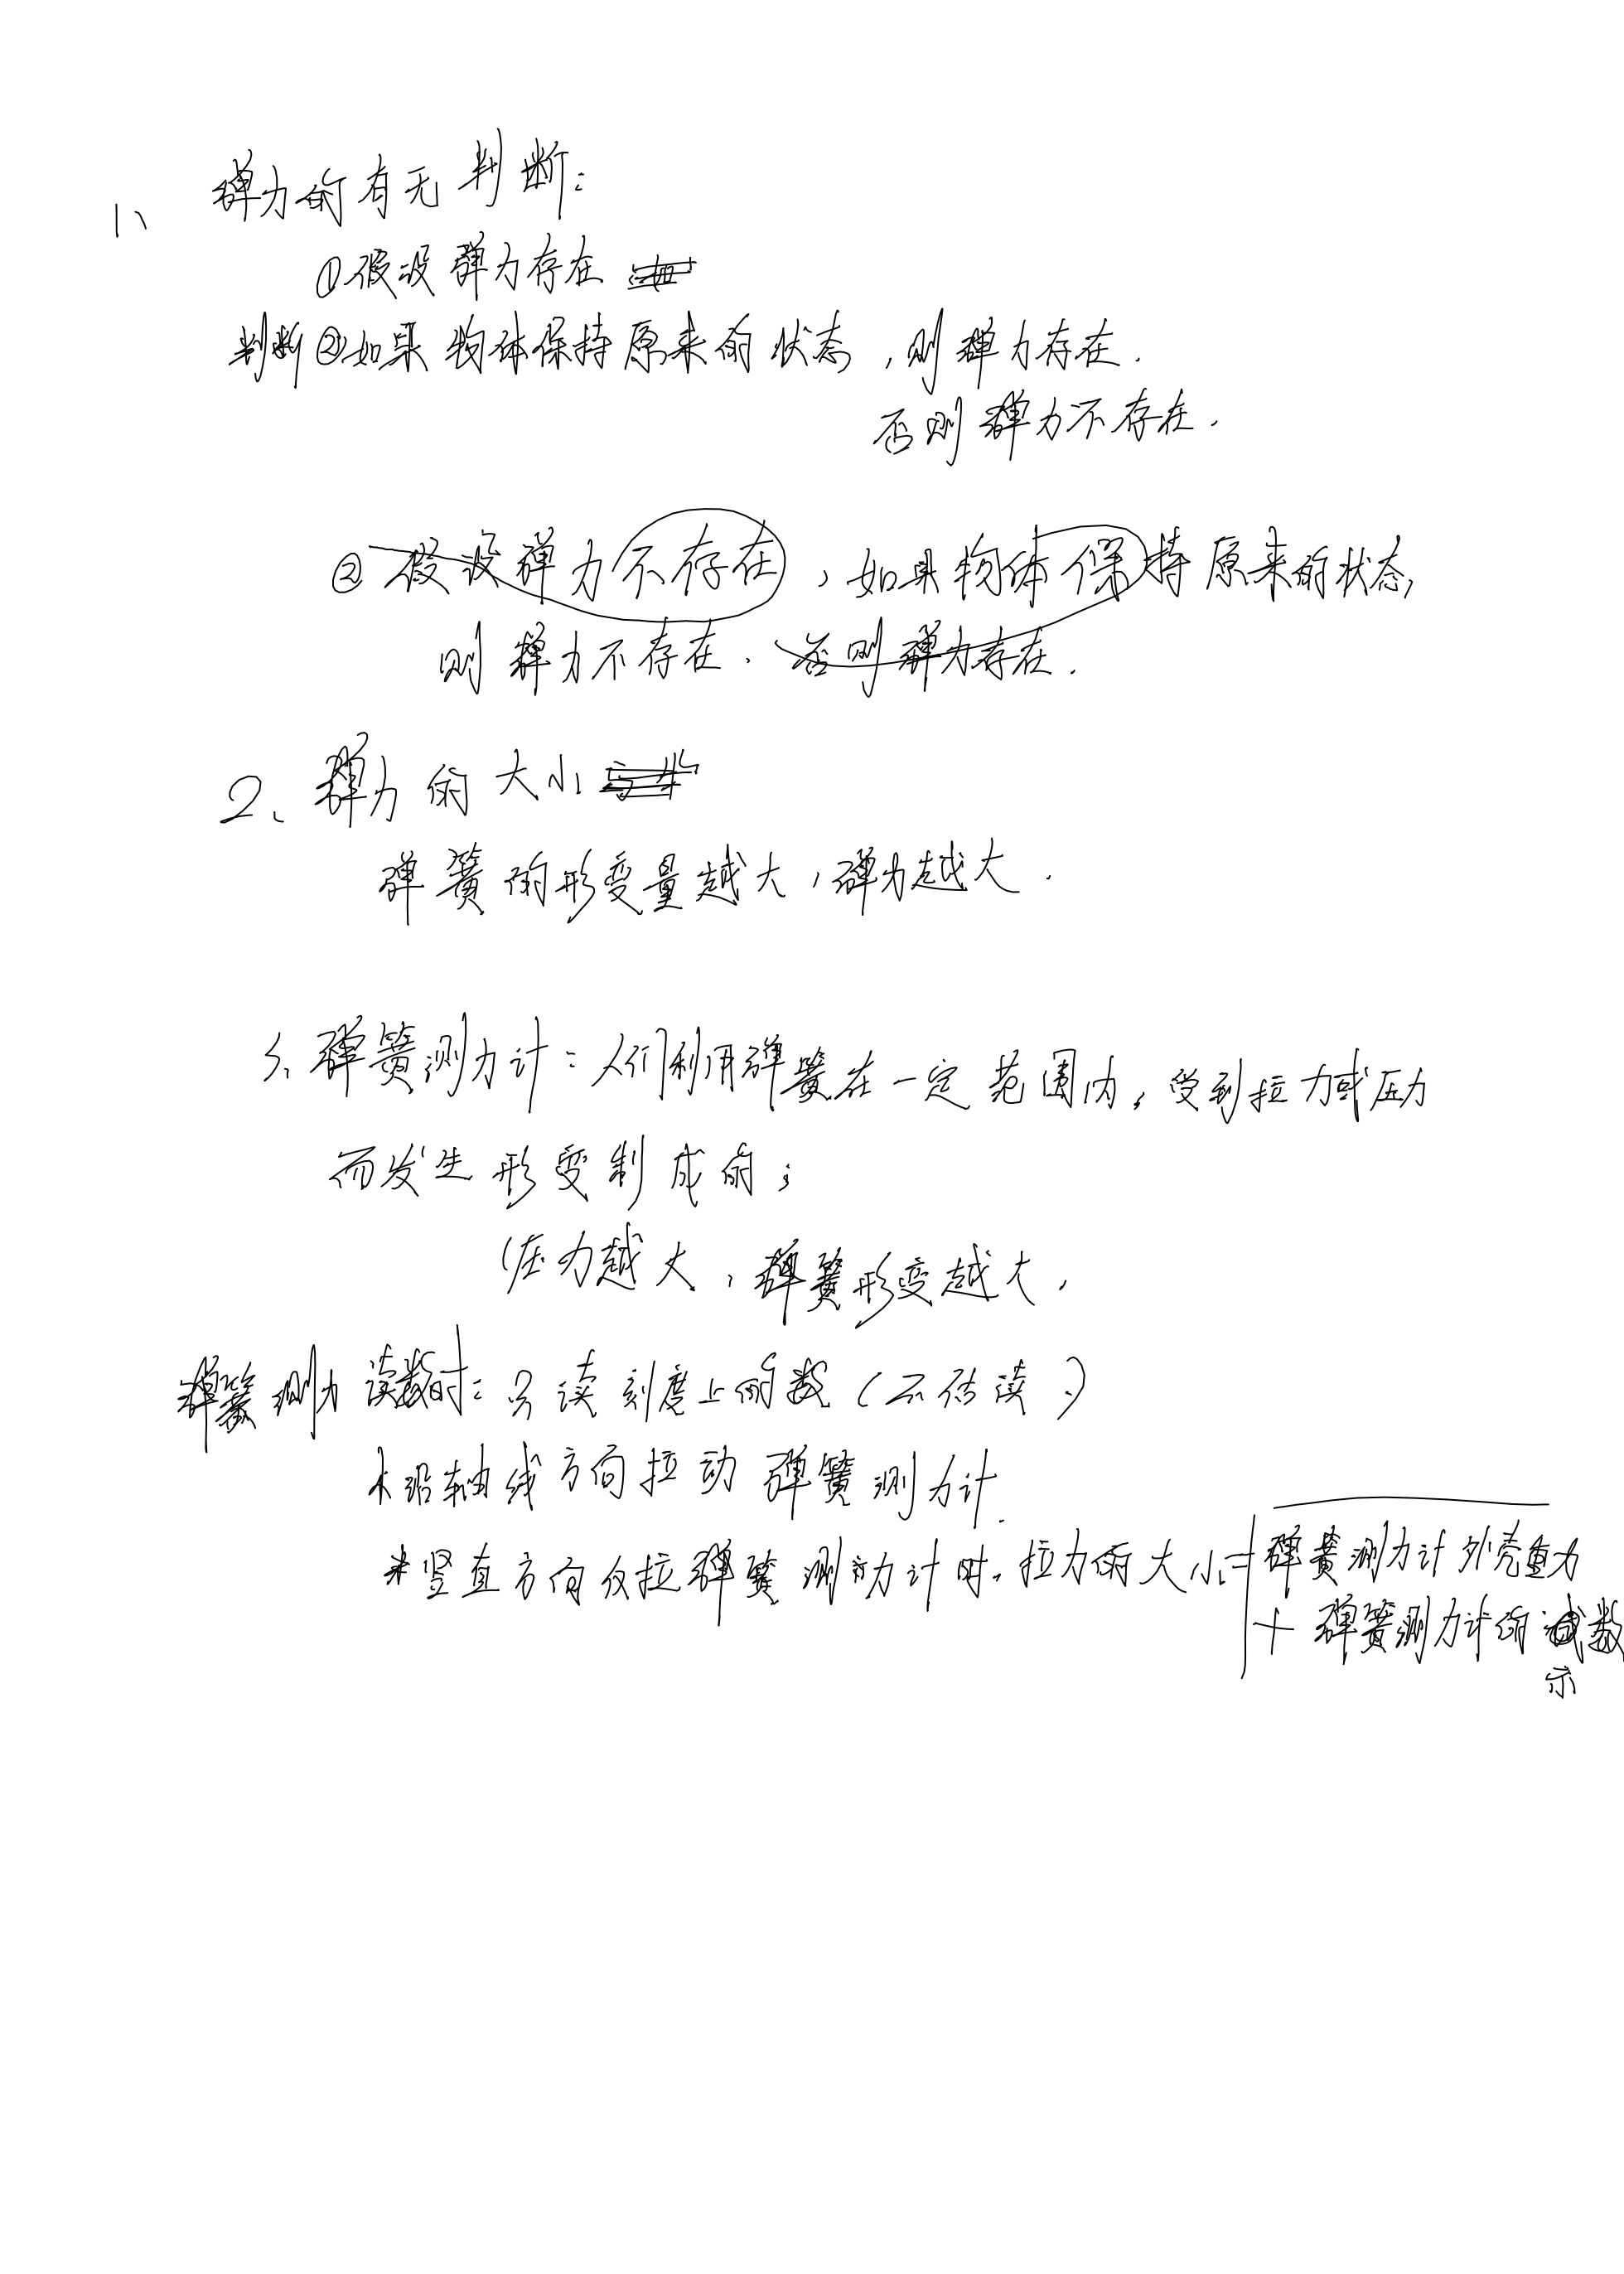 1、 弹力的有无判断:
①假设弹力存在
判断②如果物体保持原来的状态,则弹力存在.
否则弹力不存在.
② 假设弹力不存在,如果物体保持原来的状态,
则弹力不存在.否则弹力存在.
2、弹力的大小
弹簧的形变量越大,弹力越大.
3、弹簧测力计:人们利用弹簧在一定范围内,受到拉力或压力
而发生形变制成的;
(压力越大,弹簧形变越大,
弹簧测力 读数时:只读刻度上的数(不估读.)
沿轴线方向拉动弹簧测力计.
*竖直方向仅拉弹簧测力计时,拉力的大小=弹簧测力计外壳重力
+弹簧测力计的数
示